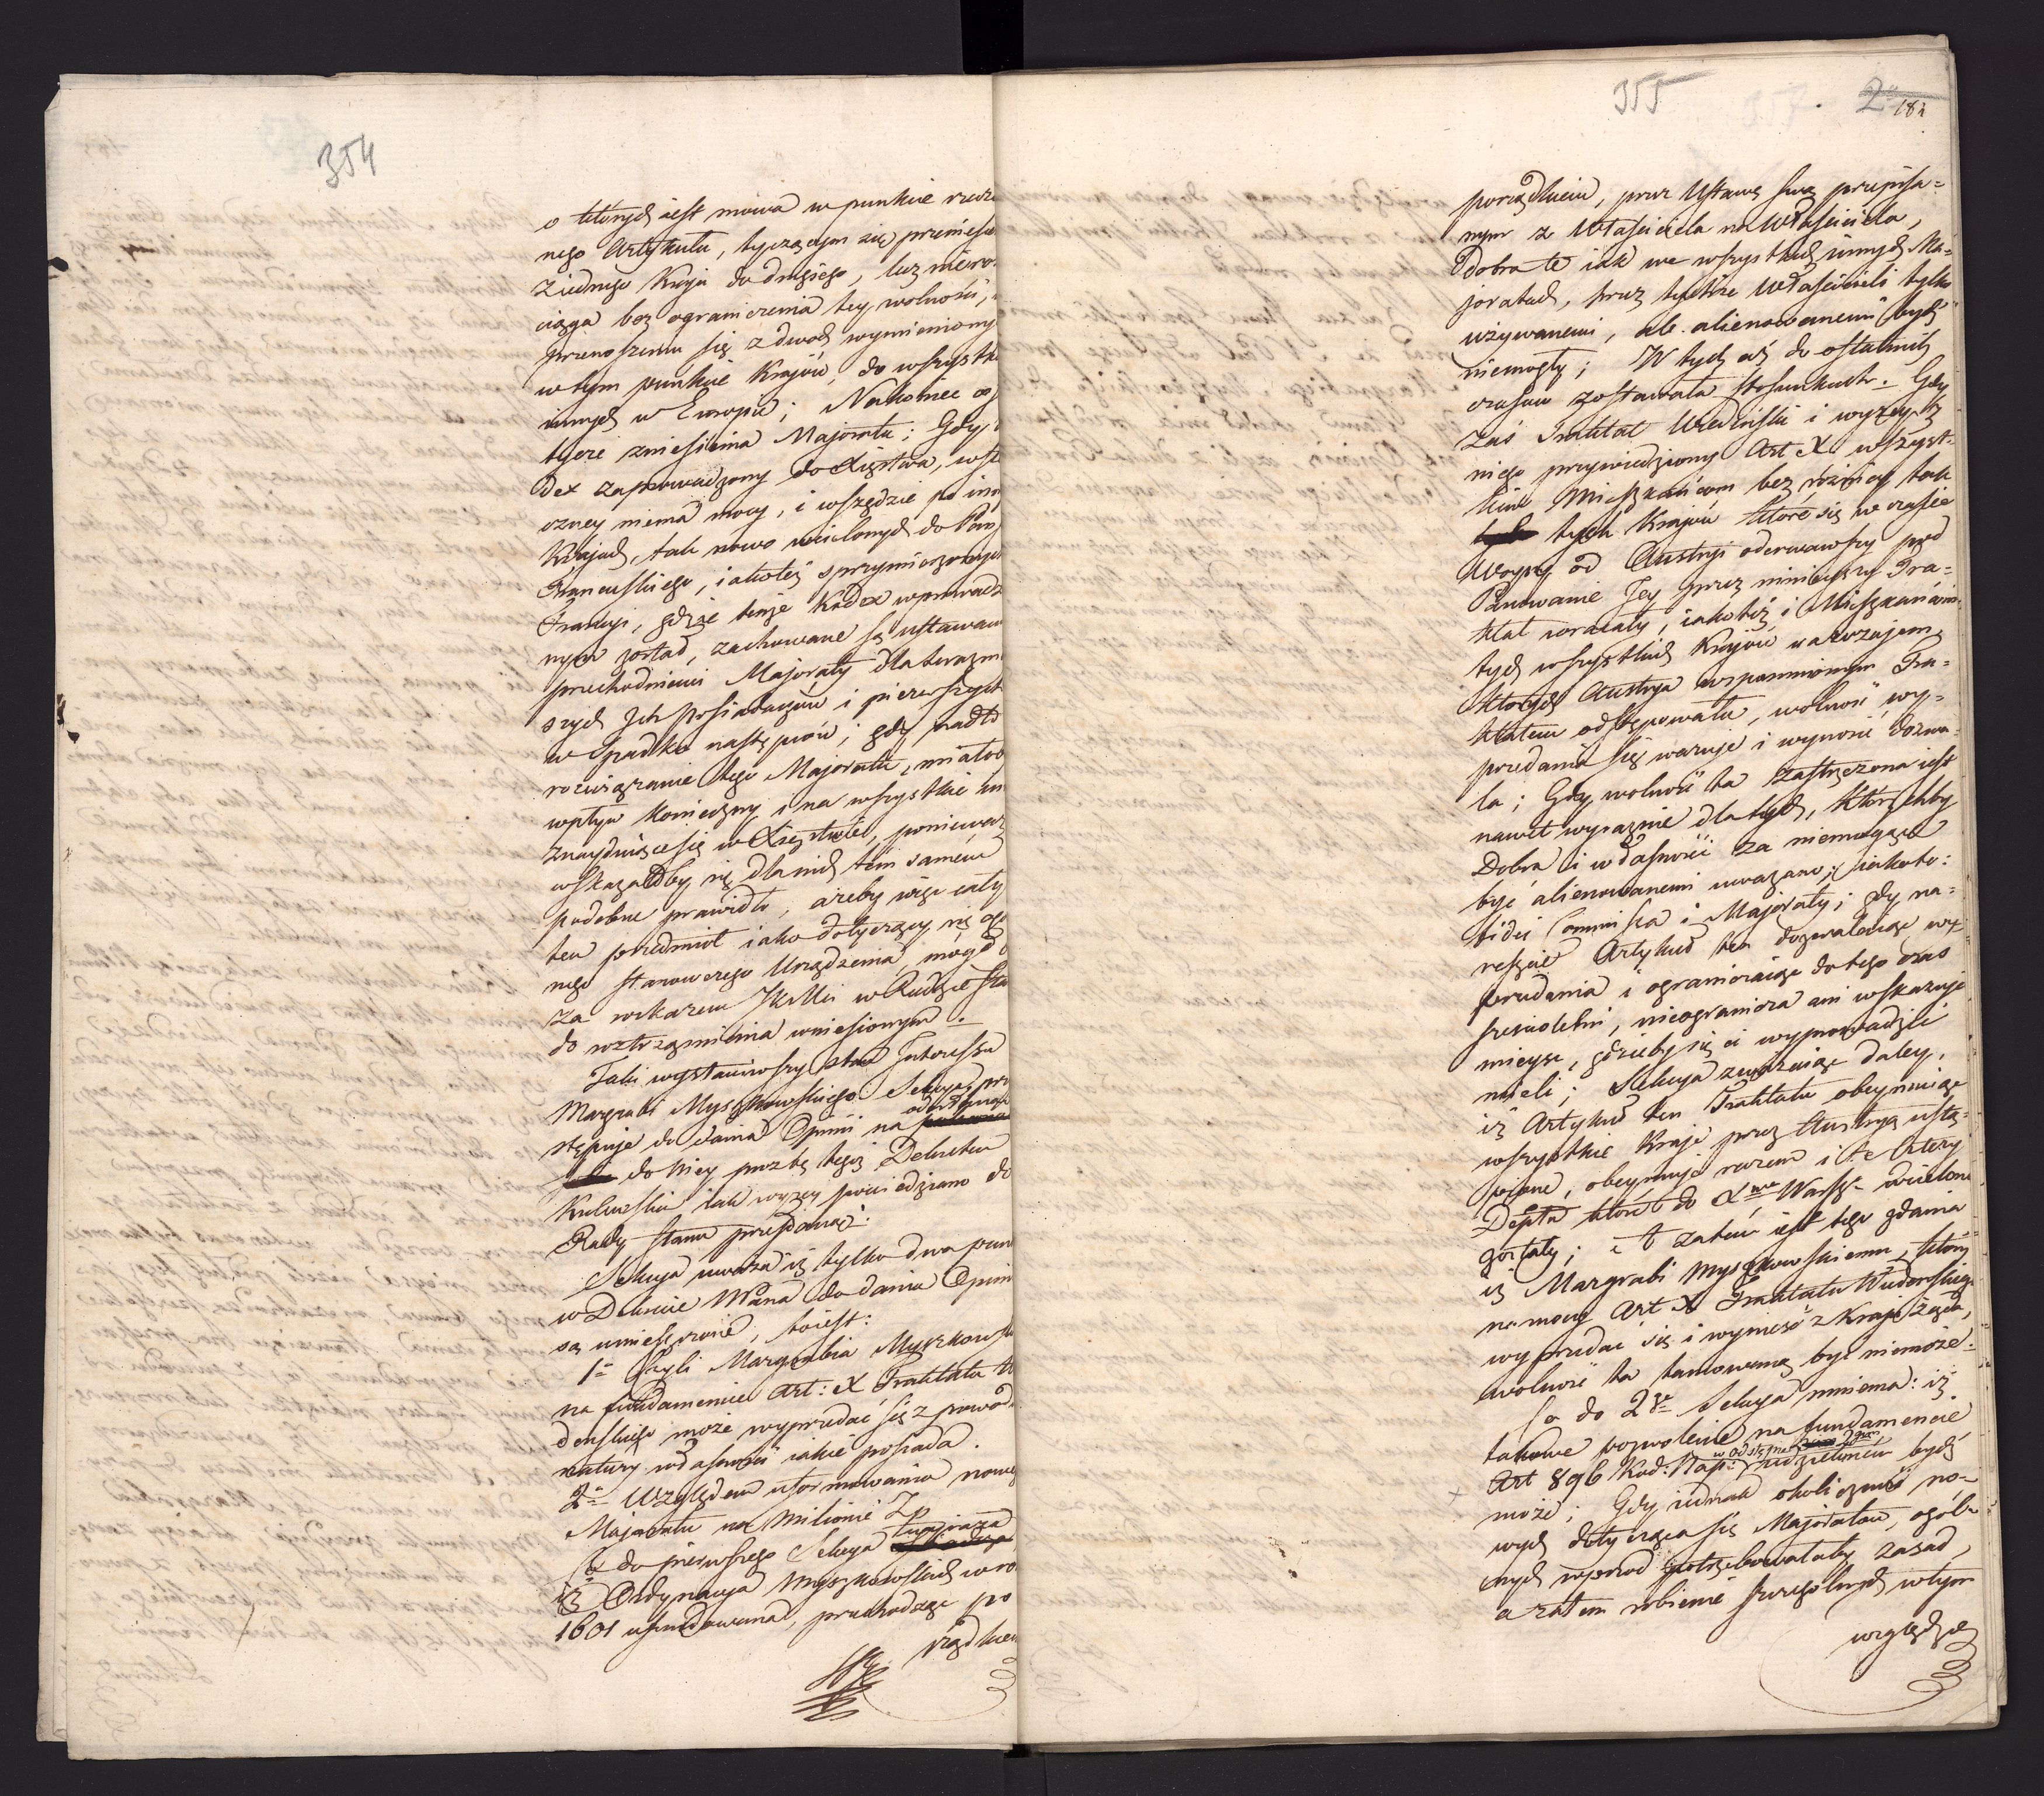 354
o których iest mowa w punkcie rzeczo
nego Artykułu, tyczącym się przeniesie
z iednego Kraju do drugiego, lecz niero
ciąga bez ograniczenia tey wolności,
przenoszenia się z dwoch wymieniony
w tym punkcie Krajów, do wszystk
innych w Europie; Nakoniec co
tycze zniesienia Majoratu; Gdy
dex zaprowadzony do Xięstwa, wst
czney niema mocy, i wszędzie po inn
Krajach, tak nowo wcielonych do Pań
Francuskiego, iakoteż sprzymierzonych
Francyi, gdzie tenże Kodex wprowadz
nym został, zachowane są ustawam
przechodniemi Majoraty dla teraznie
szych Ich posiadaczów i pierwszych
w spadku następców; gdy nadto
rozwiązanie tego Majoratu, miałoby
wpływ konieczny i na wszystkie in
znayduiące się w Xięstwie, ponieważ
wskazałby się dla nich tem samem
podobne prawidło, ażeby więc cały
ten przedmiot iako dotyczący się ogó
nego stanowczego Urządzenia, mógł b
za rozkazem JKMci w Radzie Sta
do roztrząśnienia wniesionym.
Taki wystawiwszy stan Interessu
Margrabi Myszkowskiego Sekcya przy
stępuje do dania Opinii na
do Niey prozbę tegoż Dekretem
Królewskim iak wyżey powiedziano do
Rady Stanu przesłaną:
Sekcya uważa iż tylko dwa pun
w Dekrecie NPana do dania Opini
są umieszczone, toiest:
1o Czyli Margrabia Myszkowsk
na fundamencie Art: X Traktatu W
deńskiego może wyprzedać się z powodu
natury własności iakie posiada.
2o Względem uformowania nowe
Majoratu na Milionie Zp
Co do pierwszego Sekcya uważa
iż Ordynacya Myszkowskich w ro
1601 ufundowana, przechodząc po
rządkiem
355
2
182
porządkiem, przez Ustawę swą przepisa=
nym z Właściciela na Właściciela,
dobra te iak we wszystkich innych Ma=
joratach, przez tychże Właścicieli tylko
używanemi, ale alienowanemi bydź
niemogły; W tych aż do ostatnich
czasów zostawała stosunkach. Gdy
zaś Traktat Wiedeński i wyżey z
niego przywiedziony Art X wszyst=
kim Mieszkańcom bez różnicy tak
tych Krajów które się w czasie
Woyny od Austryi oderwawszy pod
Panowanie Jey przez ninieyszy Tra=
ktat wracały, iakoteż i Mieszkańcom
tych wszystkich Krajów nawzajem,
których Austrya wspomnionym Tra=
ktatem odstępowała, wolność wy=
przedania się waruje i wynosić dozwa=
la; Gdy wolność ta zastrzeżona iest
nawet wyraznie dla tych, których by
Dobra i własności za niemogące
być alienowanemi uważano, iakoto:
fidei Commissa i Majoraty; gdy na=
reszcie Artykuł ten dozwalaiąc wy
przedania i ograniczaiąc do tego czas
sześcioletni, nieogranicza ani wskazuje
mieysc, gdzieby się ci wyprowadzić
mieli; Sekcya zważaiąc daley,
iż Artykuł ten Traktatu obeymuiąc
wszystkie Kraje przez Austryą ustą=
pione, obeymuje razem i te cztery
Depta które do Xwa Warszgo wcielone
zostały; i t zatem iest tego zdania
iż Margrabi Myszkowskiemu, który
na mocy Art X Traktatu Wiedeńskiego
wyprzedać się i wynieść z Kraju żąda,
wolność ta tamowaną być niemoże.
Co do 2go Sekcya mniema: iż
takowe pozwolenie na fundamencie
Art 896 Kod: Nap: udzielonem bydź
może; Gdy iednak okoliczność no=
wych dotycząca się Majoratów, ogól=
nych wprzod potrzebowałaby zasad,
a zatem robienie szczególnych w tym
względzie